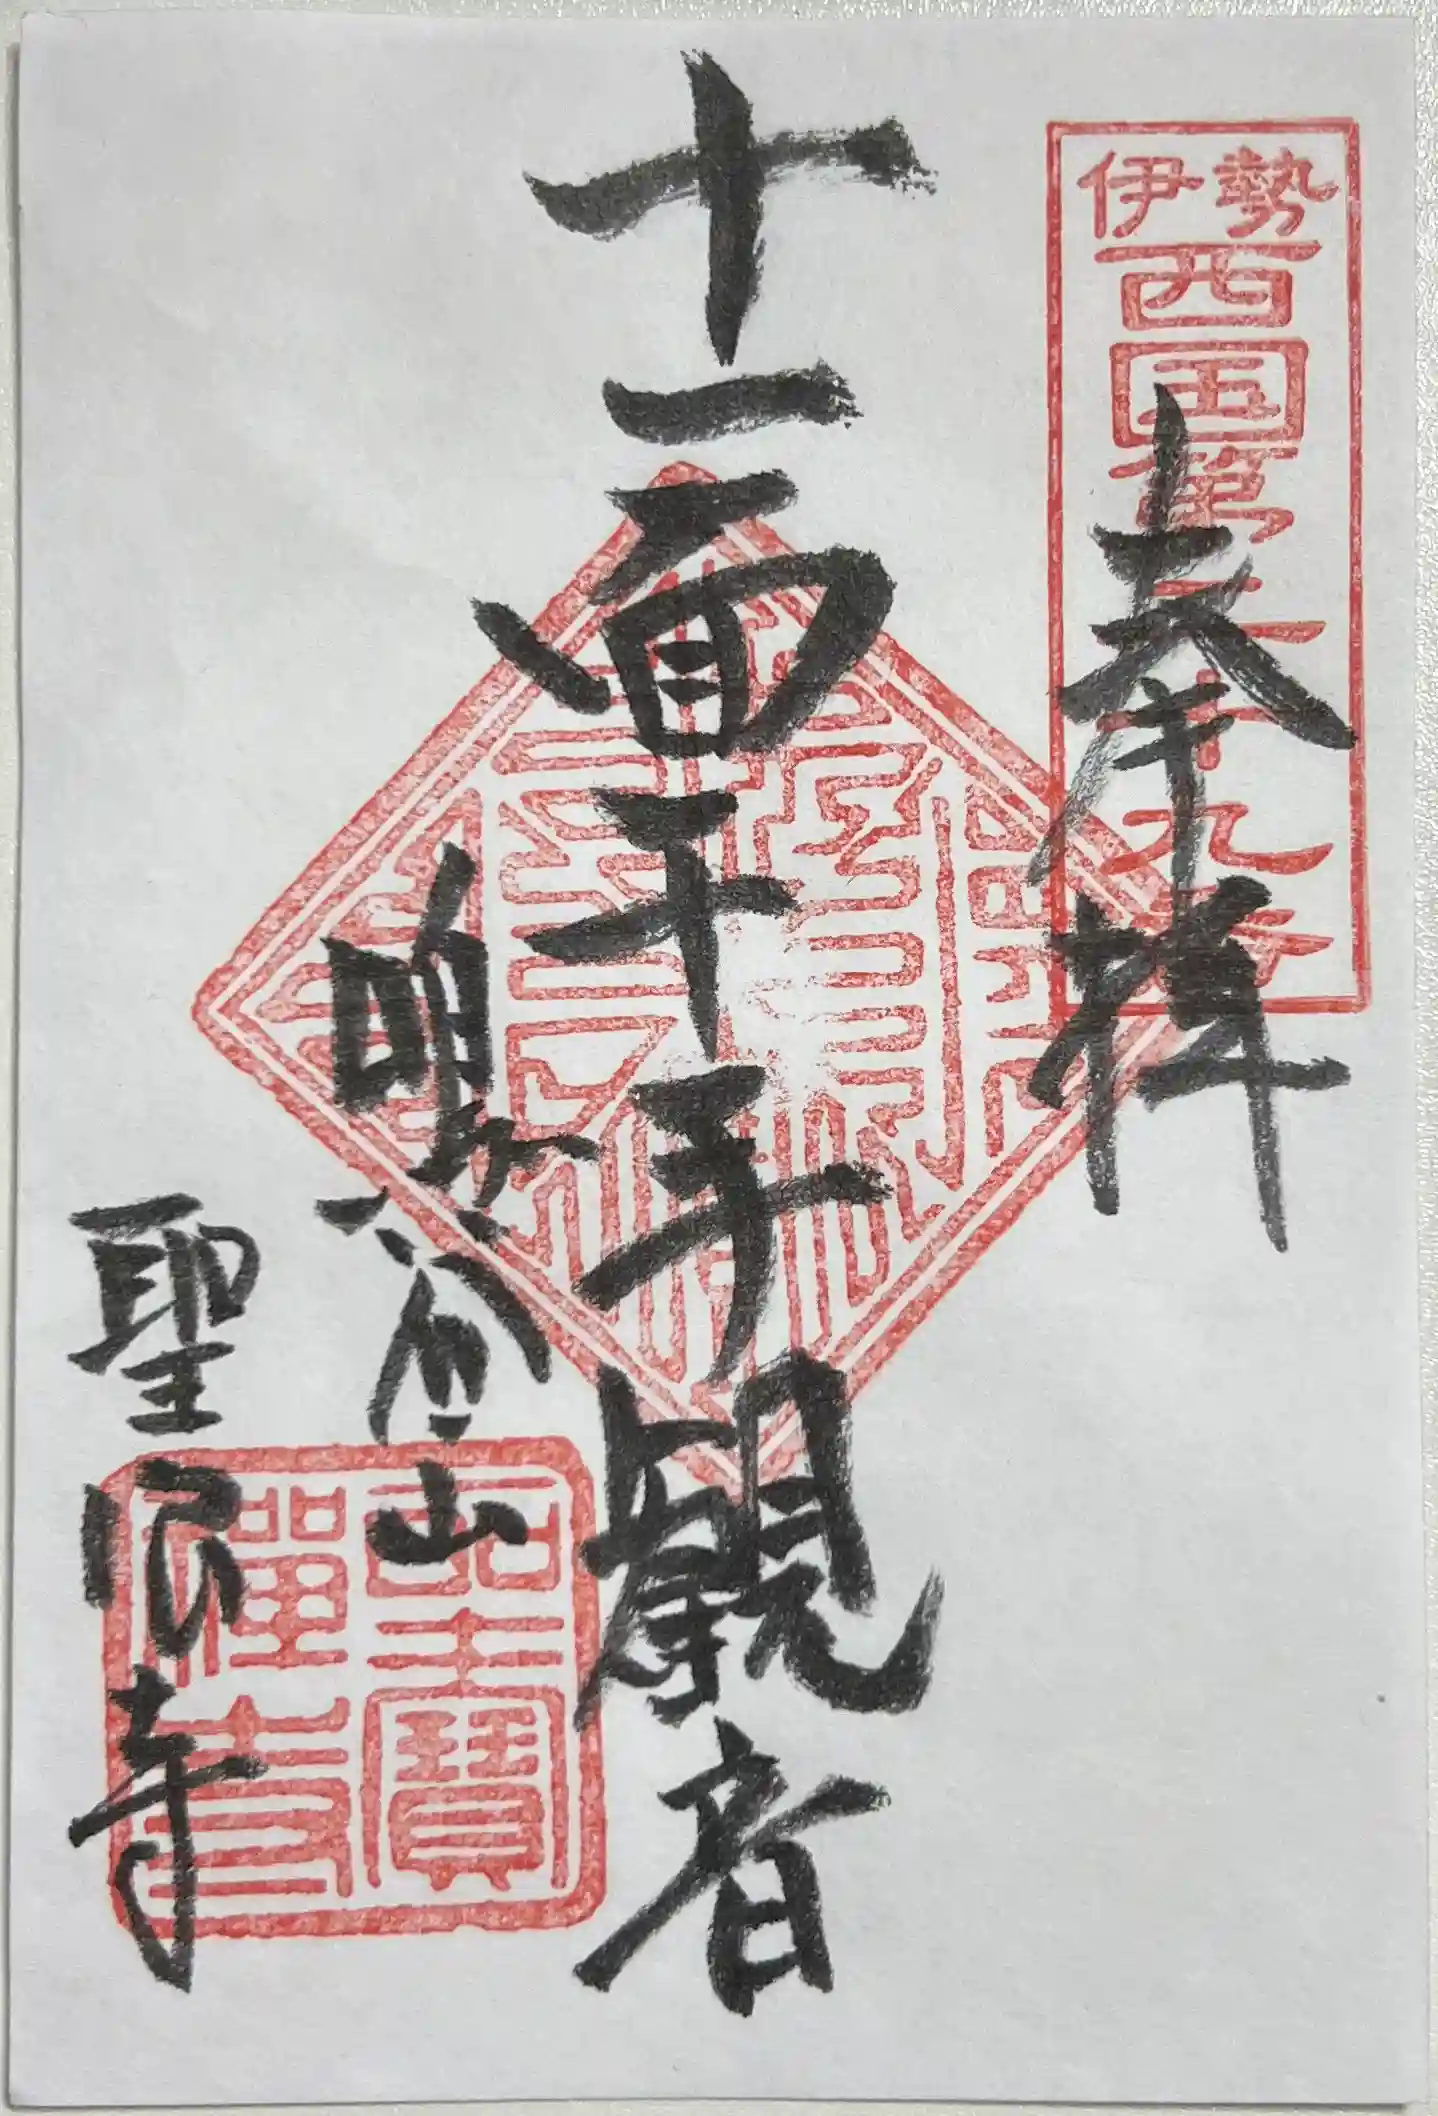 伊勢西国第二十九番
奉拝
十一面千手観音
鳴谷山
聖宝寺
聖寶
禪寺